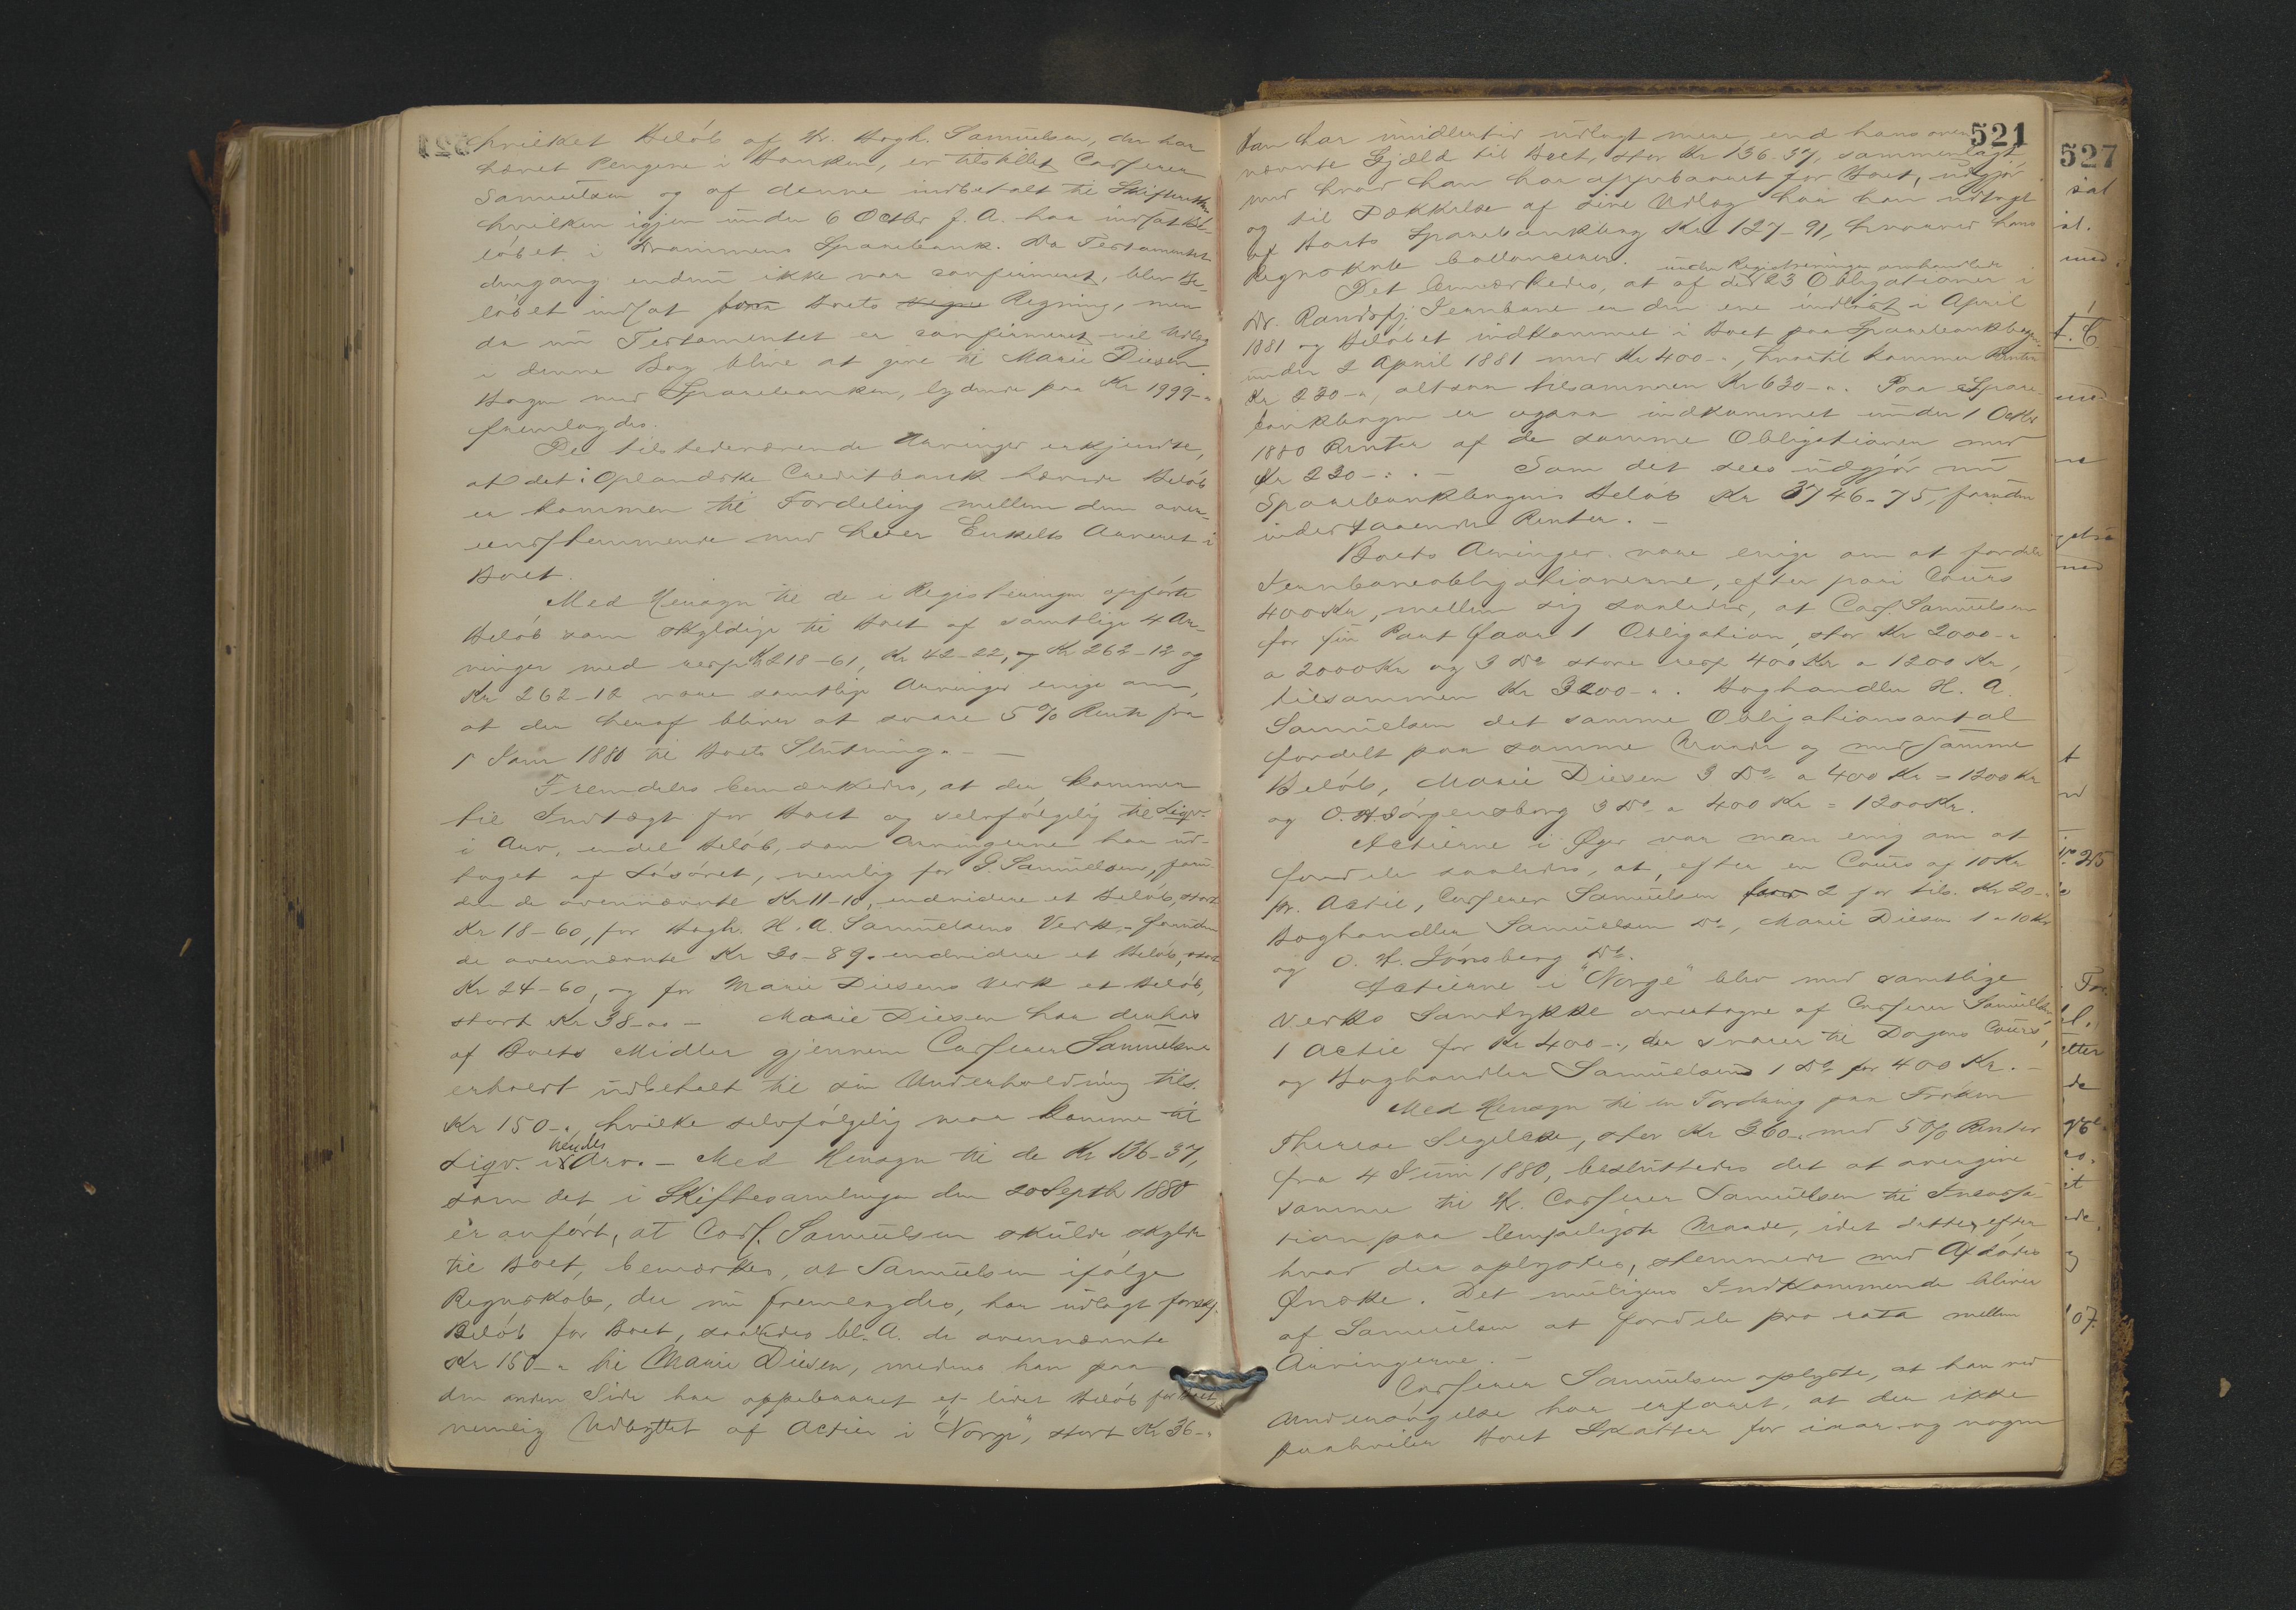 hvilket Beløb af Hr. Bogh. Samuelsen, der har
hævet Pengene i Banken, er tilstillet Carferer
Samuelsen og af denne indbetalt til Skifteretten
hvilken igjen under 6 Octbr f. A. har indsat Be-
løbet i Drammens Sparebank. Da Testamentet
dengang endnu ikke var confirmeret, blev Be-
løbet indsat for Boets Regning, men
da nu Testamentet er confirmeret vil Udlæg
i denne Bog blive at give til Marie Diesen.
Bogen med Sparebanken, lydende paa Kr 1999-"
fremlagdes.
De tilstedeværende Arvinger erkjendte,
at det i Oplandske Creditbank hævede Beløb
er kommen til Fordeling mellem dem over-
eensstemmende med hver Enkelts Arveret i
Boet.
Med Hensyn til de i Registreringen opførte
Beløb som skyldige til Boet af samtlige 4 Ar-
vinger med resp. Kr 218-61, Kr 42-22, og Kr 262-12 og
Kr 262-12 vare samtlige Arvinger enige om,
at der heraf bliver at svare 5% Rente fra
1 Janr 1880 til Boets Slutning. —
Fremdeles bemærkedes, at der kommer
til Indtægt for Boet og selvfølgelig til Liqv.
i Arv, endel Beløb, som Arvingerne har ud-
taget af Løsøret, nemlig for J. Samuelsen, foru-
den de ovennævnte Kr 11-10, endvidere et Beløb, stort
Kr 18-60, for Bogh. H. A. Samuelsens Verk. foruden
de ovennævnte Kr 30-89. endvidere et Beløb, stort
Kr 24-60, og for Marie Diesens Verk et Beløb,
stort Kr 38-" — Marie Diesen har derhos
af Boets Midler gjennem Carferer Samuelsen
erholdt udbetalt til sin Underholdning tils.
Kr 150-", hvilke selvfølgelig maa komme til
Liqv. i hendes Arv. — Med Hensyn til de Kr 136-37,
som det i Skiftesamlingen den 20 Septbr 1880
er anført, at Carf. Samuelsen skulde skylde
til Boet, bemærkes, at Samuelsen ifølge
Regnskab, der nu fremlagdes, har udlagt forskj.
Beløb for Boet, saaledes bl. A. de ovennævnte
Kr 150-" til Marie Diesen, medens han paa
den anden Side har oppebaaret et lidet Beløb for Boet,
nemlig Udbyttet af Actier i "Norge", stort Kr 36-"
521
Han har imidlertid udlagt mere, end hans oven-
nævnte Gjæld til Boet, stor Kr 136.37, sammenlagt
med hvad han har oppebaaret for Boet, udgjør
og til Dækkelse af sine Udlæg har han udtaget
af Boets Sparebankbog Kr 127-91, hvorved hans
Regnskab ballancerer.
under Registreringen omhandlede
Det bemærkedes, at af de 23 Obligationer i
Dr. Randsfj. Jernbane er den ene indløst i April
1881 og Beløbet indkommet i Boet paa Sparebankbogen
under 2 April 1881 med Kr 400-", hvortil kommer Renter
Kr 230-", altsaa tilsammen Kr 630-". Paa Spare-
bankbogen er ogsaa indkommet under 1 Octbr
1880 Renter af de samme Obligationer med
Kr 230-". — Som det sees udgjør nu
Sparebankbogens Beløb Kr 3746-75, foruden
indestaaende Renter. —
Boets Arvinger vare enige om at fordele
Jernbaneobligationerne, efter pari Cours
400 Kr, mellem sig saaledes, at Carf. Samuelsen
for sin Part faar 1 Obligation, stor Kr 2000-"
a 2000 Kr og 3 Do store resp 400 Kr a 1200 Kr,
tilsammen Kr 3200-". Boghandler H. A.
Samuelsen det samme Obligationsantal
fordelt paa samme Maade og med samme
Beløb, Marie Diesen 3 Do a 400 Kr = 1200 Kr
og O. H. Jørgensborg 3 Do a 400 Kr = 1200 Kr.
Actierne i Øger var man enig om at
fordele saaledes, at, efter en Cours af 10 Kr
pr. Actie, Carferer Samuelsen faar 2 for tils. Kr 20-"
Boghandler Samuelsen Do, Marie Diesen 1 a 10 Kr
og O. H. Jönsberg Do.
Actierne i "Norge" blev med samtlige
Verks Samtykke overtagne af Carferer Samuelsen,
1 Actie for Kr 400-", der svarer til Dagens Cours,
og Boghandler Samuelsen 1 Do for 400 Kr. —
Med Hensyn til en Fordring paa Frøken
Therese Segelcke, stor Kr 360-" med 5% Renter
fra 4 Juni 1880, besluttedes det at overgive
samme til Hr. Carferer Samuelsen til Incassa-
tion paa lempeligste Maade, idet dette, efter
hvad der oplystes, stemmede med Afdødes
Ønske. Det muligens Indkommende bliver
af Samuelsen at fordele pro rata mellem
Arvingerne. —
Carferer Samuelsen oplyste, at han ved
Undersøgelse har erfaret, at der ikke
paahviler Boet Skatter for iaar og nogen
527